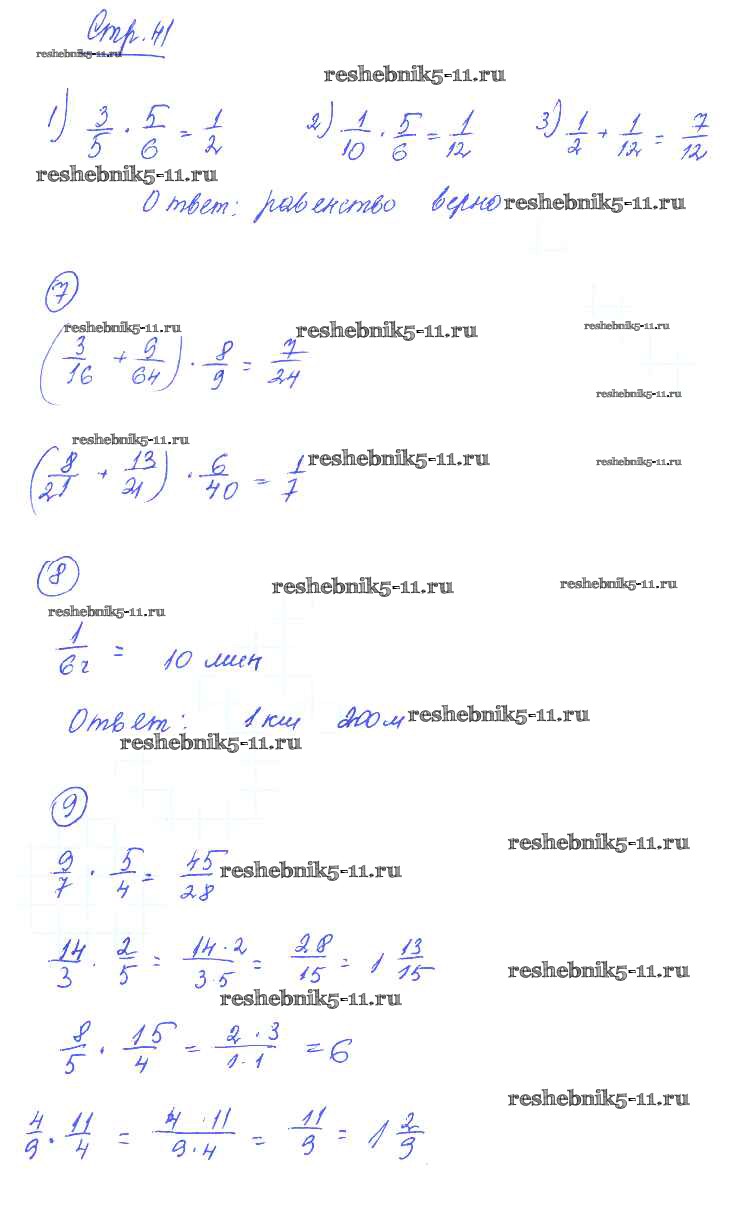 Стр. 41
reshebnik5-11.ru
reshebnik5-11.ru
1) 3/5 · 5/6 = 1/2 2) 1/10 · 5/6 = 1/12 3) 1/2 + 1/12 = 7/12
reshebnik5-11.ru
Ответ: равенство верно reshebnik5-11.ru
7
reshebnik5-11.ru reshebnik5-11.ru reshebnik5-11.ru
(3/16 + 9/64) · 8/9 = 7/24
reshebnik5-11.ru
reshebnik5-11.ru reshebnik5-11.ru reshebnik5-11.ru
(8/21 + 13/21) · 6/40 = 1/7
8
reshebnik5-11.ru reshebnik5-11.ru
reshebnik5-11.ru
1/6ч = 10 мин
Ответ: 1 км 200 м reshebnik5-11.ru
reshebnik5-11.ru
9
reshebnik5-11.ru
9/7 · 5/4 = 45/28 reshebnik5-11.ru
14/3 · 2/5 = 14·2/3·5 = 28/15 = 1 13/15 reshebnik5-11.ru
reshebnik5-11.ru
8/5 · 15/4 = 2·3/1·1 = 6
reshebnik5-11.ru
4/9 · 11/4 = 4·11/9·4 = 11/9 = 1 2/9